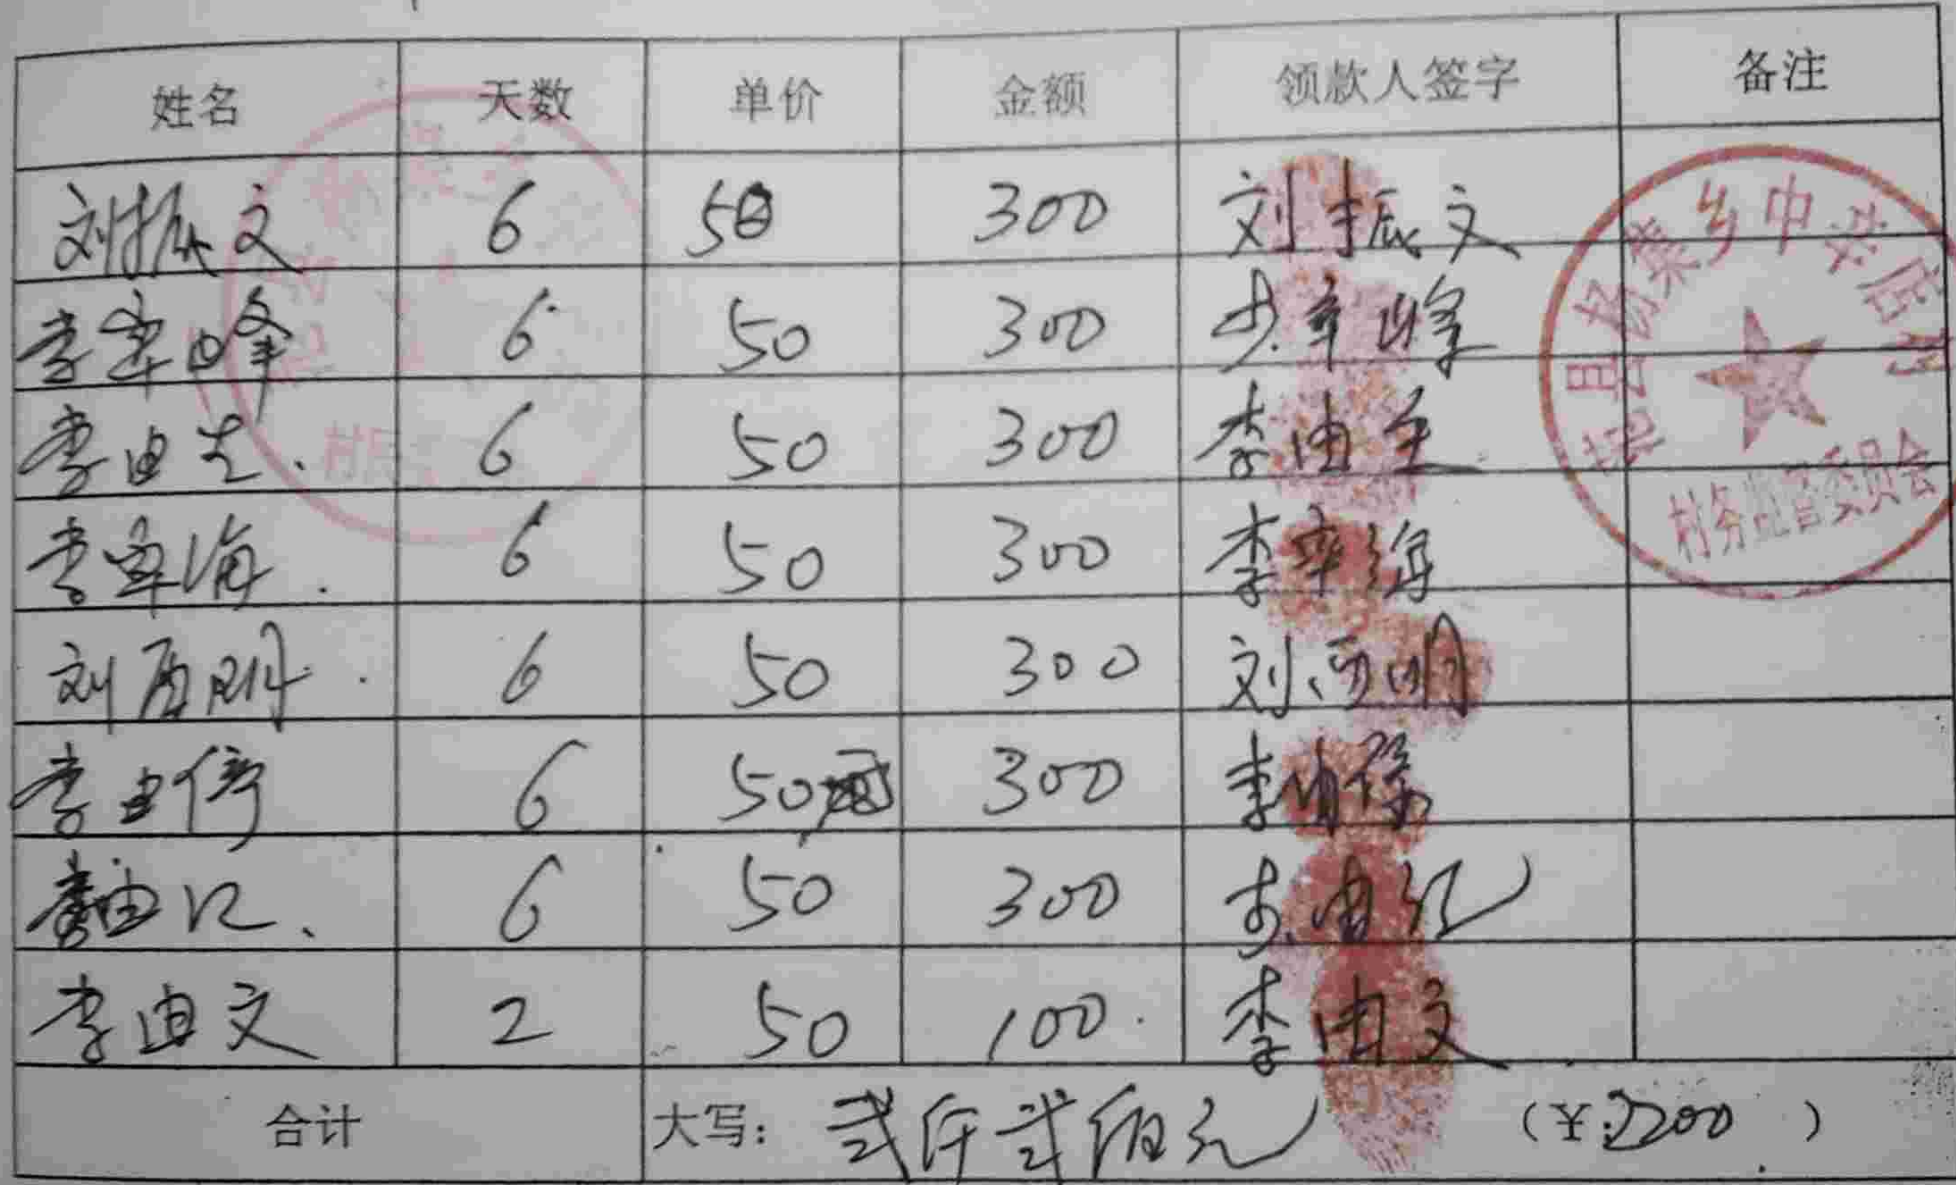 姓名 天数 单价 金额 领款人签字 备注
刘振文 6 50 300 刘振文
李峰 6 50 300 峰
李由 6 50 300 李由生
李海 6 50 300 李海
刘西明 6 50 300 刘西明
李由 6 50 300 李由
李由 6 50 300 李由红
李由文 2 50 100 李由文
合计 大写: 弍仟弍佰元 (¥:2200)
县杨集乡中李居村
村务监督委员会